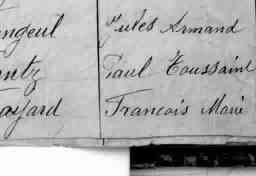 ngeul Jules Armand
ntz Paul Toussaint
François Marie